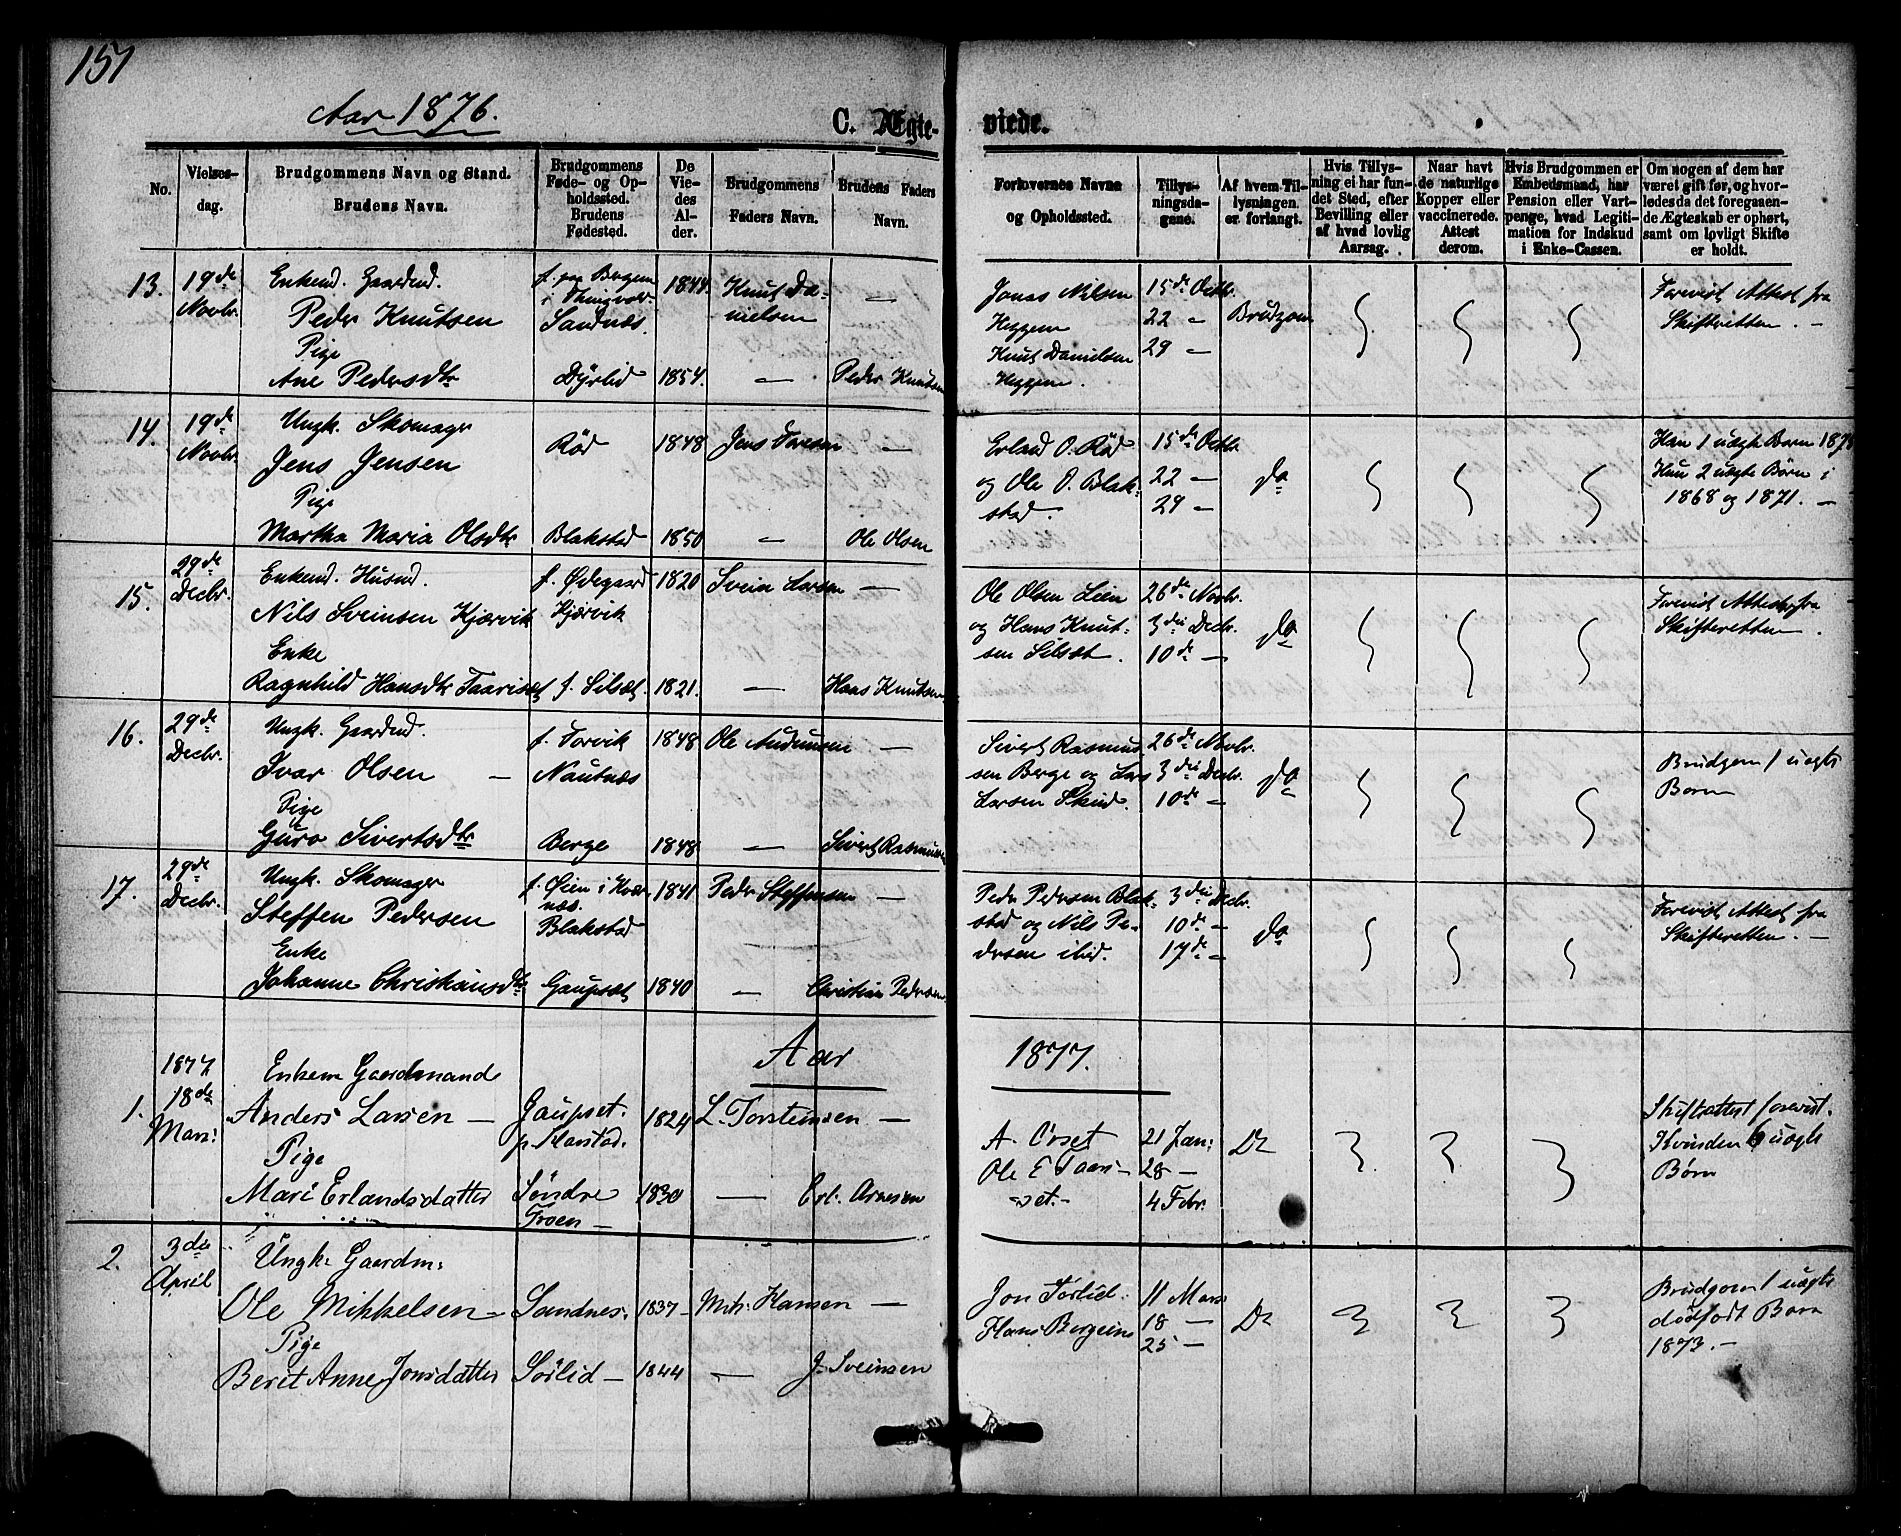 151
Aar 1876.
C. Ægte-
viede.
No.
Vielses-
dag.
Brudgommens Navn og Stand.
Brudens Navn.
Brudgommens
Føde- og Op-
holdssted.
Brudens
Fødested.
De
Vie-
des
Al-
der.
Brudgommens
Faders Navn.
Brudens Faders
Navn.
Forlovernes Navne
og Opholdssted.
Tillys-
ningsda-
gene.
Af hvem Til-
lysningen
er forlangt.
Hvis Tillys-
ning ei har fun-
det Sted, efter
Bevilling eller
af hvad lovlig
Aarsag.
Naar havt
de naturlige
Kopper eller
vaccinerede.
Attest
derom.
Hvis Brudgommen er
Embedsmand, har
Pension eller Vart-
penge, hvad Legiti-
mation for Indskud
i Enke-Cassen.
Om nogen af dem har
været gift før, og hvor-
ledes da det foregaaen-
de Ægteskab er ophørt,
samt om lovligt Skifte
er holdt.
13.
19de
Novbr.
Enkemd. Gaardmd.
Peder Knutsen
Pige
Ane Pedersdtr
f. paa Bergem
i Thingvold
Sandnæs.
Dyrlid
1844.
1854.
Knut Da-
nielsen
—
—
Peder Knutsen
Jonas Nilsen
Heggem
Knut Danielsen
Heggem.
15de Octbr.
22 "
29 "
Brudgom
Forevist Attest fra
Skifteretten. —
14.
19de
Novbr.
Ungk. Skomager
Jens Jensen
Pige
Martha Maria Olsdtr
Rød
Blakstad
1848
1850
Jens Toresen
—
—
Ole Olsen
Erland O. Rød
og Ole O. Blak-
stad.
15de Octbr.
22 —
29 —
do
Han 1 uægte Barn 187
Hun 2 uægte Børn i
1868 og 1871. —
15.
29de
Decbr.
Enkemd. Husmd.
Nils Sveinsen Kjærvik
Enke
Ragnhild Hansdtr Taariset
f. Ødegaard
Kjærvik
f. Silset
1820
1821.
Svein Larsen
—
—
Hans Knutsen
Ole Olsen Lien
og Hans Knut-
sen Silset.
26de Novbr.
3die Decbr.
10de —
do
Forevist Attest fra
Skifteretten.
16.
29de
Decbr.
Ungk. Gaardmd.
Ivar Olsen —
Pige
Guro Sivertsdtr
f. Torvik
Nautnæs
Berge
1848
1848
Ole Audunsen
—
—
Sivert Rasmusen
Sivert Rasmus-
sen Berge og Lars
Larsen Skud.
26de Novbr.
3die Decbr.
10de "
do
Brudgom 1 uægte
Barn
17.
29de
Decbr.
Ungk. Skomager
Steffen Pedersen
Enke
Johanne Christiansdtr
f. Øien i Kvær-
næs.
Blakstad
Gaupset
1841
1840
Peder Steffensen
—
—
Christian Pedersen
Peder Pedersen Blak-
stad og Nils Pe-
dersen ibid.
3die Decbr.
10de —
17de "
do
Forevist Attest fra
Skifteretten. —
Aar 1877.
1877
1.
18de
Mars:
Enkem Gaardmand
Anders Larsen —
Pige
Mari Erlandsdatter
Gaupset.
p. Harstad.
Søndre
Troen —
1824
1830
L. Torsteinsen
—
—
Erl. Arnesen
A. Orset
Ole E Taari-
set. —
21 Jan:
28 —
4 Febr.
Do
Skifteattest forevist.
Kvinden 6 uægte
Børn
2.
3die
April
Ungk. Gaardm:
Ole Mikkelsen —
Pige
Beret Anne Jonsdatter
Sandnes.
Sørlid —
1837 —
1844
Mik. Hansen
—
—
J. Sveinsen
Jon Sørlid.
Hans Bergeim
11 Mars
18 —
25 —
Do
Brudgom 1 uægte
dødfødt Barn
1873. —